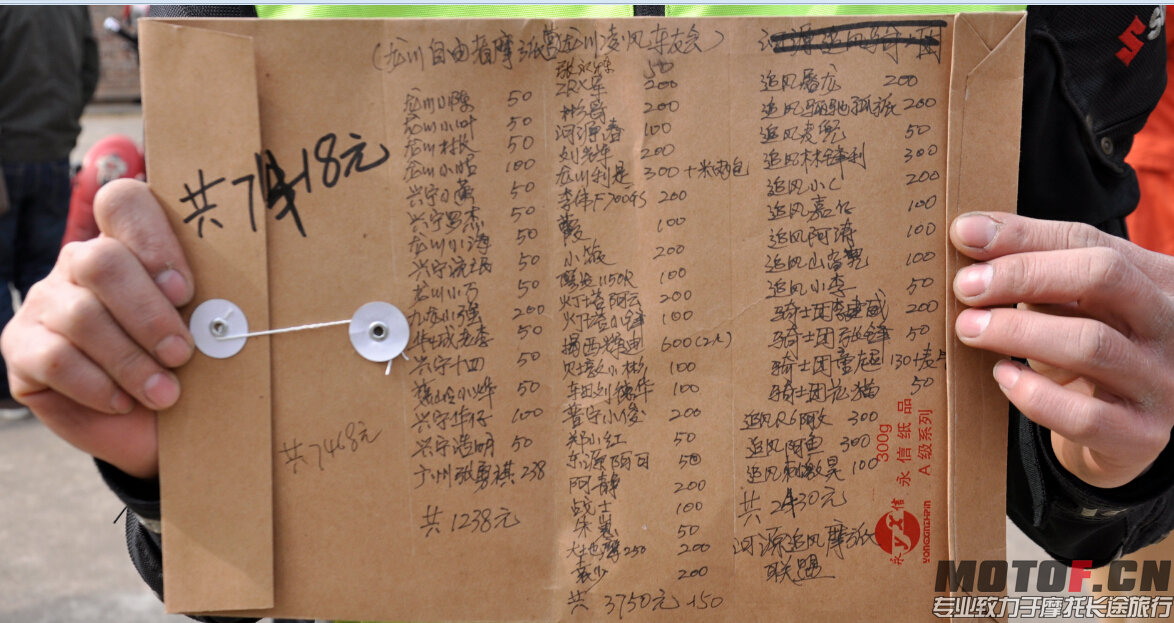 (龙川自由者摩托车营龙川凌风车友会)
共7418元
50
龙川小叶 50
龙川村长 50
龙川小帽 100
兴宁小黄 50
兴宁罗杰 50
龙川小海 50
兴宁流氓 50
龙川小万 50
九龙小强 200
华城老李 50
兴宁十四 50
小烨 50
兴宁华仔 100
兴宁浩明 50
广州张勇祺 238
共1238元
共7468元
50
ZRX军 200
彬哥 200
河源春 100
刘光华 200
龙川利是 300+米两包
李伟F700GS 200
霞 100
小敏 200
1150R 100
灯塔阿云 200
灯塔小锋 100
揭西辉迪 600(2人)
小彬 100
车田刘德华 100
普宁小俊 200
郑小红 50
东源阿日 50
阿静 200
战士 100
朱 50
大地 250 200
袁少 200
共3750元+50
追风屠龙 200
追风 200
追风麦兜 50
追风林锋利 300
追风小C 200
追风嘉仔 100
追风阿涛 100
追风山 100
追风小李 50
骑士团 威 200
骑士团张锋 50
骑士团董超 130+麦
骑士团花猫 50
追风R6阿文 300
追风阿鱼 300
追风 100
共2430元
河源追风摩托
联盟
300g
永信纸品
A级系列
永信
YONGXINZHIPIN
MOTOF.CN
专业致力于摩托长途旅行